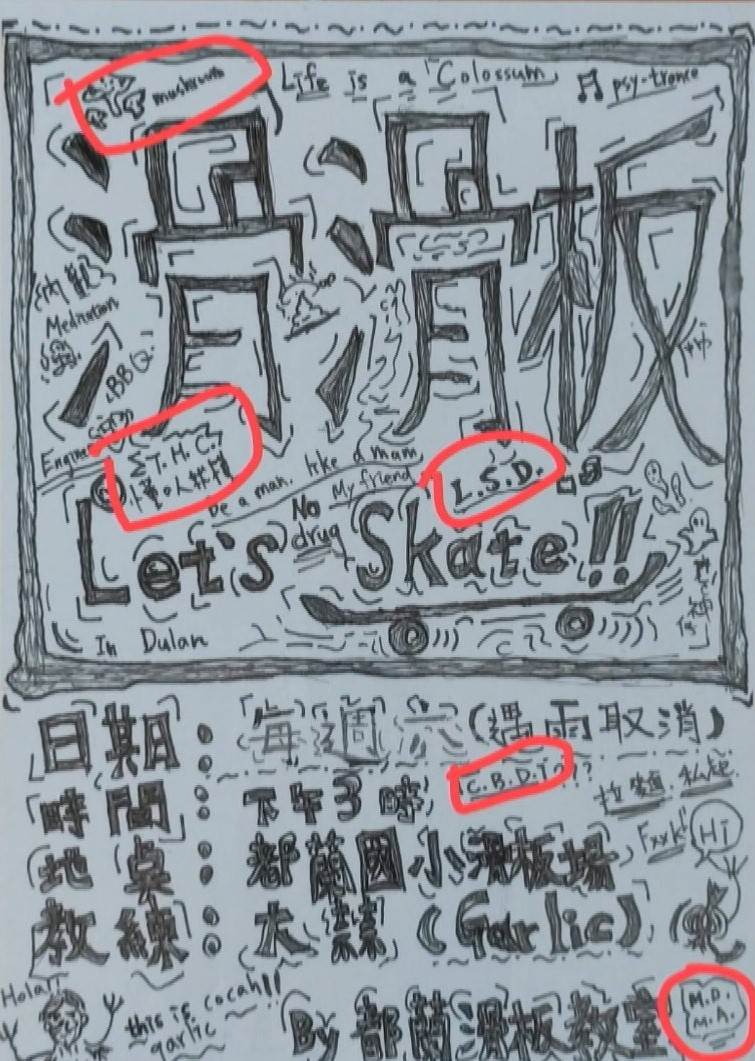 mushroom
Life is a Colossum
psy-trance
滑滑板
內觀
Meditation
BBQ
T.H.C.?
懂的人就懂
be a man. like a man
My friend
No drug
L.S.D.
Let's Skate!!
In Dulan
日期：每週六（遇雨取消）
時間：下午3時
C.B.D.???
地點：都蘭國小滑板場
Fxxk
Hi
教練：大蒜（Garlic）
Hola!!
this is cocah!!
garlic
By 都蘭滑板教室
M.D.
M.A.